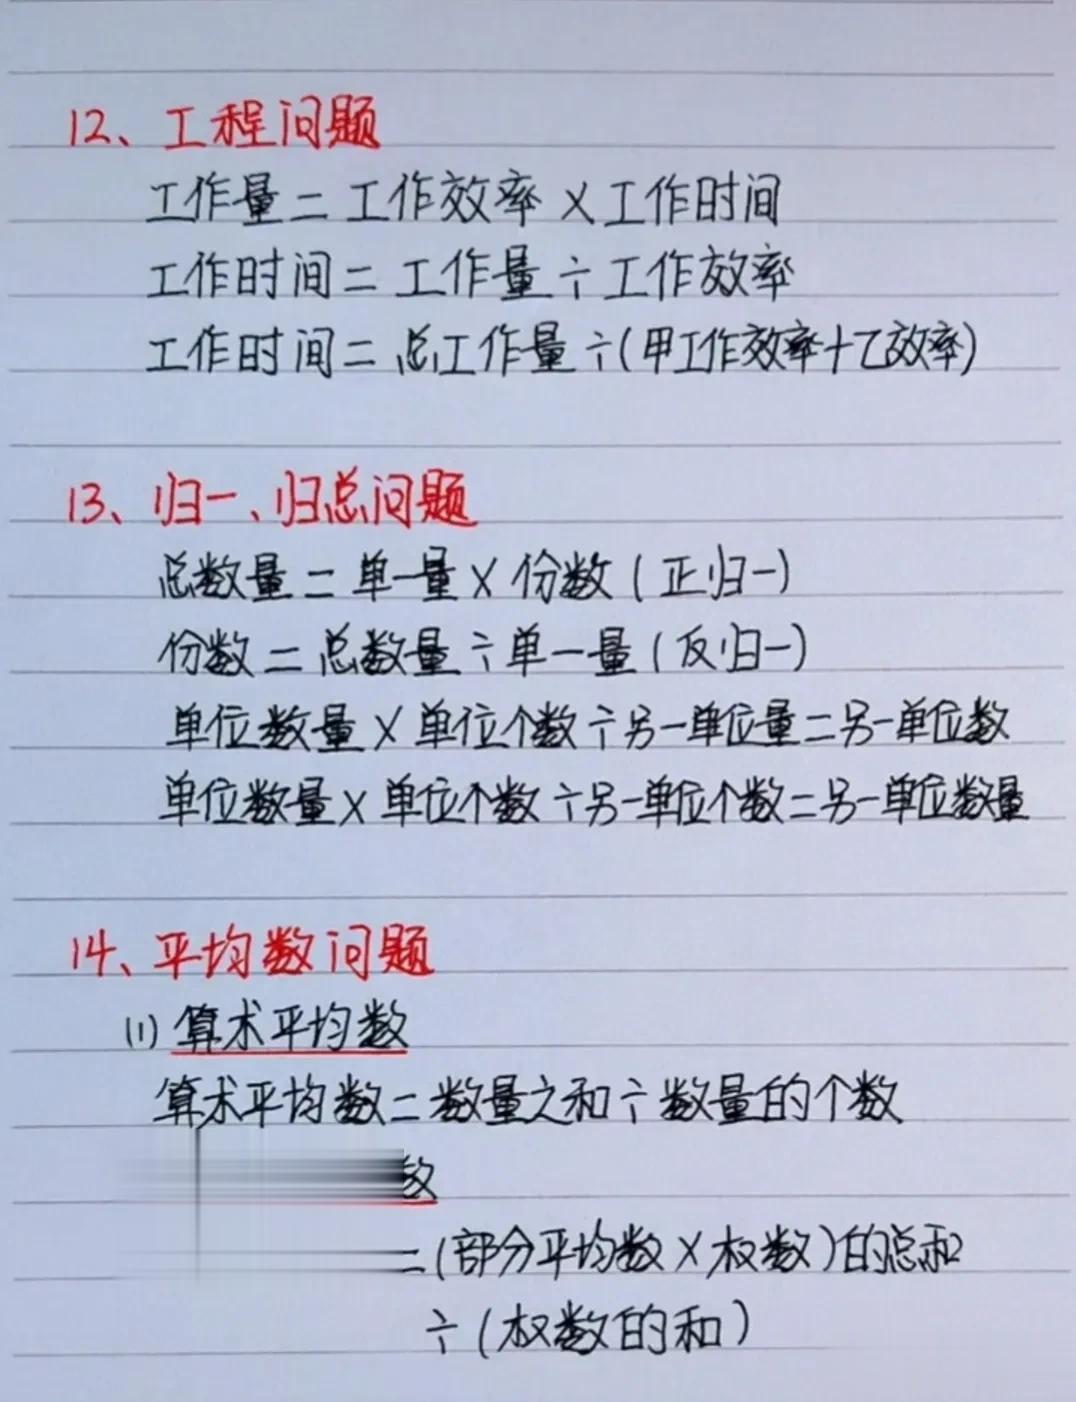 12、工程问题
工作量=工作效率×工作时间
工作时间=工作量÷工作效率
工作时间=总工作量÷(甲工作效率+乙效率)
13、归一、归总问题
总数量=单一量×份数(正归一)
份数=总数量÷单一量(反归一)
单位数量×单位个数÷另一单位量=另一单位数
单位数量×单位个数÷另一单位个数=另一单位数量
14、平均数问题
(1)算术平均数
算术平均数=数量之和÷数量的个数
数
=(部分平均数×权数)的总和
÷(权数的和)